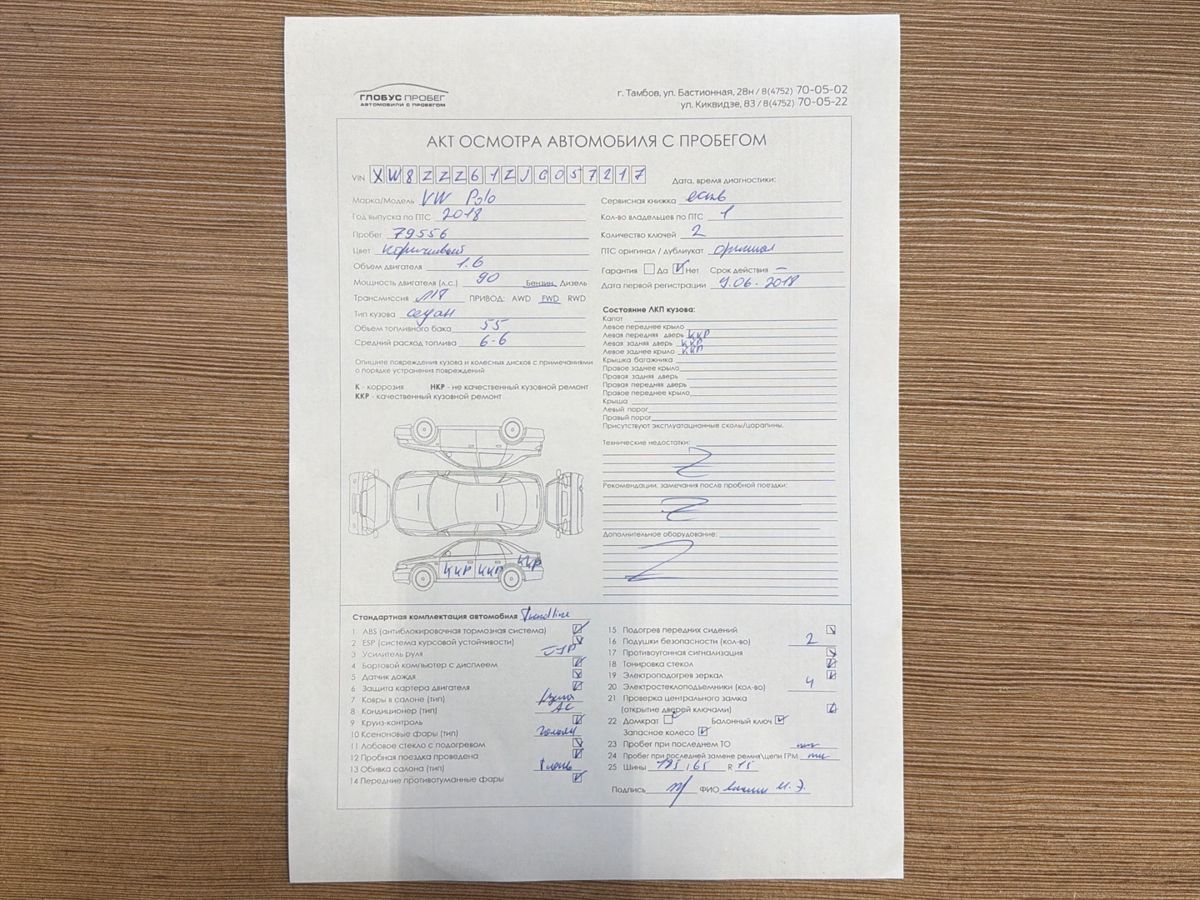 ГЛОБУС ПРОБЕГ
АВТОМОБИЛИ С ПРОБЕГОМ
г. Тамбов, ул. Бастионная, 28н / 8(4752) 70-05-02
ул. Киквидзе, 83 / 8(4752) 70-05-22
АКТ ОСМОТРА АВТОМОБИЛЯ С ПРОБЕГОМ
VIN XW8ZZZ61ZJG057217
Марка/Модель VW Polo
Год выпуска по ПТС 2018
Пробег 79556
Цвет коричневый
Объем двигателя 1.6
Мощность двигателя (л.с.) 90 Бензин Дизель
Трансмиссия ПРИВОД: AWD FWD RWD
Тип кузова седан
Объем топливного бака 55
Средний расход топлива 6-6
Опишите повреждения кузова и колесных дисков с примечаниями
о порядке устранения повреждений
К - коррозия НКР - не качественный кузовной ремонт
ККР - качественный кузовной ремонт
ККР ККР ККР
Дата, время диагностики:
Сервисная книжка есть
Кол-во владельцев по ПТС 1
Количество ключей 2
ПТС оригинал / дубликат оригинал
Гарантия Да Нет Срок действия —
Дата первой регистрации 9.06.2018
Состояние ЛКП кузова:
Капот
Левое переднее крыло
Левая передняя дверь ККР
Левая задняя дверь ККР
Левое заднее крыло ККР
Крышка багажника
Правое заднее крыло
Правая задняя дверь
Правая передняя дверь
Правое переднее крыло
Крыша
Левый порог
Правый порог
Присутствуют эксплуатационные сколы/царапины.
Технические недостатки:
Рекомендации, замечания после пробной поездки:
Дополнительное оборудование:
Стандартная комплектация автомобиля Trendline
1 ABS (антиблокировочная тормозная система)
2 ESP (система курсовой устойчивости)
3 Усилитель руля
4 Бортовой компьютер с дисплеем
5 Датчик дождя
6 Защита картера двигателя
7 Ковры в салоне (тип)
8 Кондиционер (тип) АС
9 Круиз-контроль
10 Ксеноновые фары (тип)
11 Лобовое стекло с подогревом
12 Пробная поездка проведена
13 Обивка салона (тип)
14 Передние противотуманные фары
15 Подогрев передних сидений
16 Подушки безопасности (кол-во) 2
17 Противоугонная сигнализация
18 Тонировка стекол
19 Электроподогрев зеркал
20 Электростеклоподъемники (кол-во) 4
21 Проверка центрального замка
(открытие дверей ключами)
22 Домкрат Балонный ключ
Запасное колесо
23 Пробег при последнем ТО
24 Пробег при последней замене ремня\цепи ГРМ
25 Шины 185 / 65 R 15
Подпись ФИО